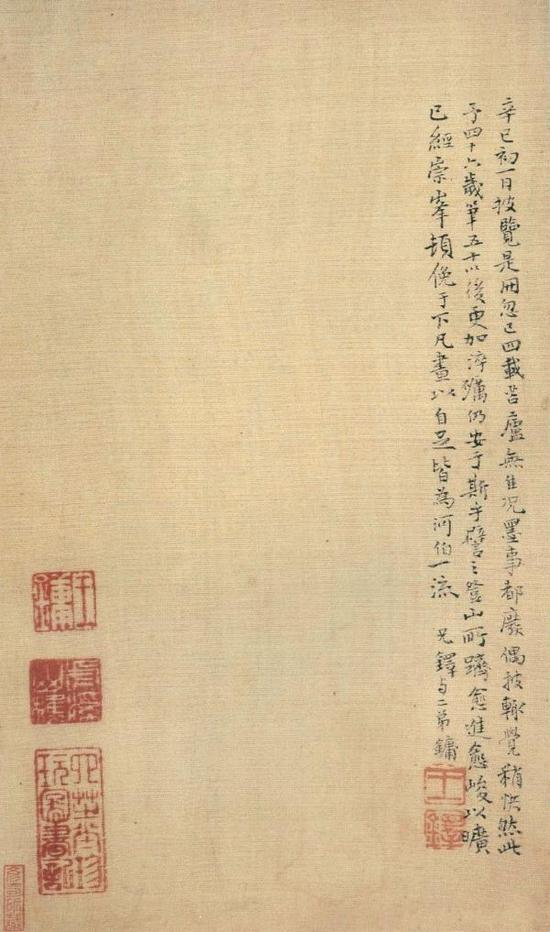 辛巳初一日披覽是冊忽已四載苫廬無佳況墨事都廢偶披輒覺稍快然此
予四十六歲筆五十以後更加淬礪仍安于斯乎譬之登山所躋愈進愈峻以曠
已經崇峯頓俛于下凡畫以自足皆為河伯一流 兄鐸与二弟鏞
王鐸
王鏞